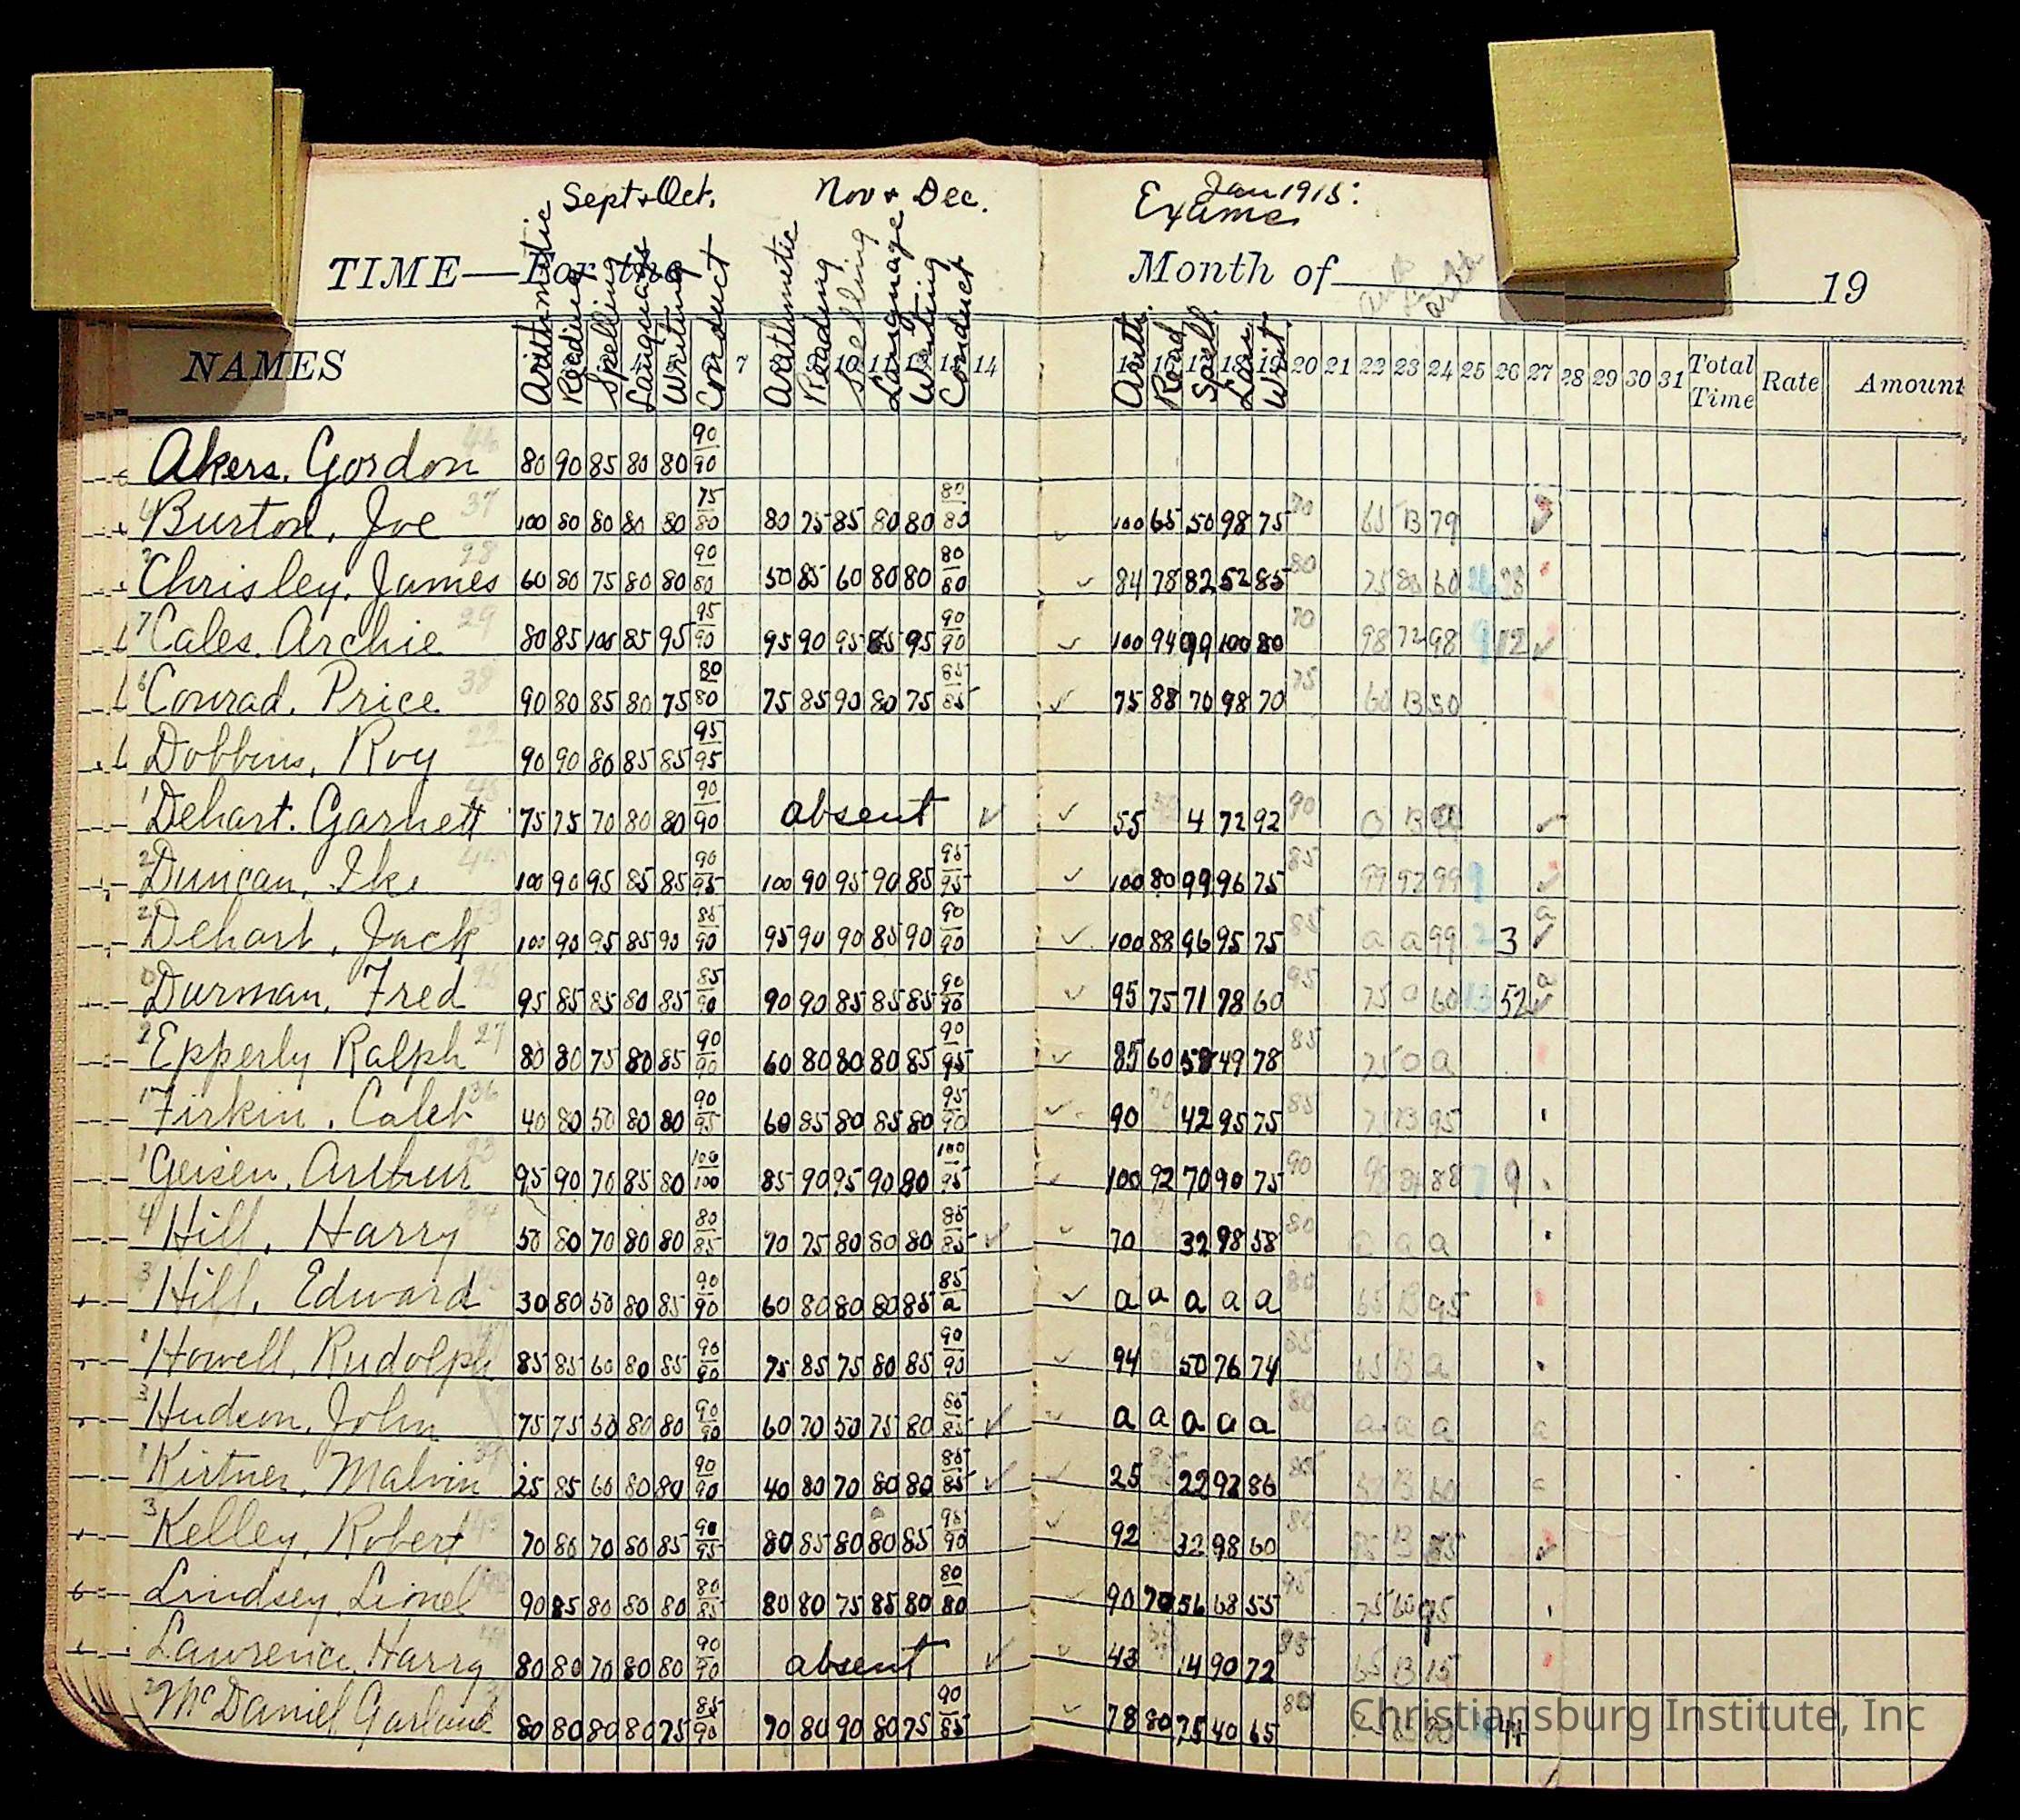 Sept + Oct. Nov + Dec. Jan 1915: Exams
TIME—For the Month of 19
NAMES Arithmetic Reading Spelling Language Writing Conduct 7 Arithmetic Reading Spelling Language Writing Conduct 14 Arith. Read Spell. Lan. Writ. 20 21 22 23 24 25 26 27 28 29 30 31 Total Time Rate Amount
Akers, Gordon 80 90 85 80 80 90 90
Burton, Joe 37 100 80 80 80 80 75 80 80 75 85 80 80 80 80 100 65 50 98 75 70 65 B 79
Chrisley, James 28 60 80 75 80 80 90 80 50 85 60 80 80 80 80 84 78 82 52 85 80
7 Cales, Archie 29 80 85 100 85 95 95 90 95 90 95 85 95 90 90 100 94 99 100 80 70 98 72 98
Conrad, Price 38 90 80 85 80 75 80 80 75 85 90 80 75 85 85 75 88 70 98 70 75 60 B 50
Dobbins, Roy 22 90 90 80 85 85 95 95
1 Dehart, Garnett 75 75 70 80 80 90 90 absent 55 4 72 92 90
2 Duncan, Ike 100 90 95 85 85 90 95 100 90 95 90 85 95 95 100 80 99 96 75 85 99 92 99 9
2 Dehart, Jack 100 90 95 85 90 85 90 95 90 90 85 90 90 90 100 88 96 95 75 85 a a 99 2 3 a
Durman, Fred 95 85 85 80 85 85 90 90 90 85 85 85 90 90 95 75 71 78 60 95 75 a 60 13 52 a
2 Epperly Ralph 27 80 80 75 80 85 90 90 60 80 80 80 85 90 95 85 60 58 49 78 85 75 a a
1 Firkin, Caleb 36 40 80 50 80 80 90 95 60 85 80 85 80 95 90 90 42 95 75 85 75 B 95
1 Geisen, Arthur 95 90 70 85 80 100 100 85 90 95 90 80 100 95 100 92 70 90 75 90 7 9
4 Hill, Harry 50 80 70 80 80 80 85 70 75 80 80 80 85 85 70 32 98 58 80 a a a
3 Hill, Edward 30 80 50 80 85 90 90 60 80 80 80 85 85 a a a a a a 80 65 B 95
Howell, Rudolph 85 85 60 80 85 90 90 75 85 75 80 85 90 90 94 50 76 74 85 65 B a
3 Hudson, John 75 75 50 80 80 90 90 60 70 50 75 80 85 85 a a a a a 80 a a a a
1 Kirtner, Malvin 25 85 60 80 80 90 90 40 80 70 80 80 85 85 25 22 92 86
3 Kelley, Robert 70 80 70 80 85 90 95 80 85 80 80 85 95 90 92 32 98 60 80
Lindsey, Lionel 90 85 80 80 80 80 85 80 80 75 85 80 80 80 90 70 56 68 55 95 75 60 95
Lawrence, Harry 80 80 70 80 80 90 90 absent 43 14 90 72 95 65 B 15
2 McDaniel Garland 80 80 80 80 75 85 90 70 80 90 80 75 90 85 78 80 75 40 65 80 44
Christiansburg Institute, Inc